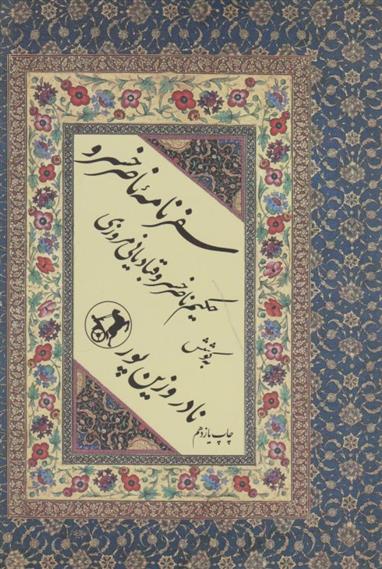 سفرنامهٔ ناصرخسرو
حکیم ناصرخسرو قبادیانی مروزی
بکوشش
نادر وزین پور
چاپ یازدهم